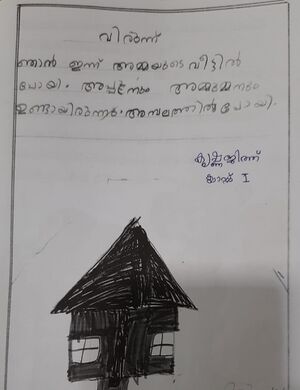 വിരുന്ന്
ഞാൻ ഇന്ന് അമ്മയുടെ വീട്ടിൽ
പോയി. അപ്പൂനും അമ്മുമ്മയും
ഉണ്ടായിരുന്നു. അമ്പലത്തിൽ പോയി.
കൃഷ്ണജിത്ത്
ക്ലാസ്സ് I